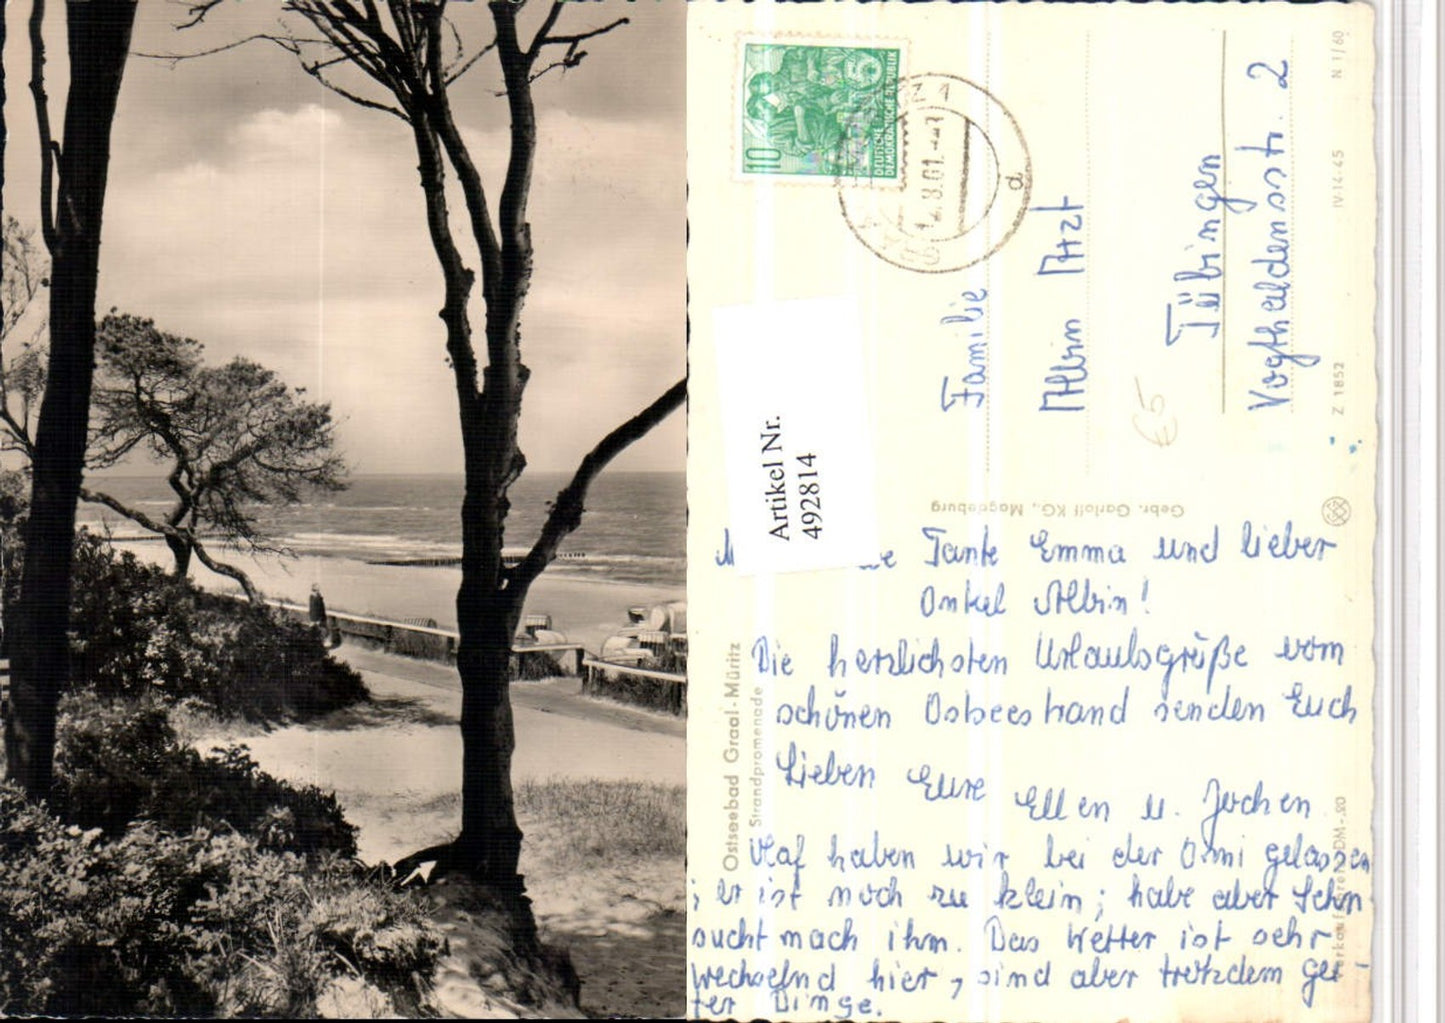 10
5
DEUTSCHE
DEMOKRATISCHE REPUBLIK
d
Familie
Albin Arzt
Tübingen
Vogthaldensstr. 2
€5
N 1/60
IV-14-45
Z 1852
Artikel Nr.
492814
Gebr. Garloff KG., Magdeburg
Ostseebad Graal-Müritz
Strandpromenade
Tante Emma und lieber
Onkel Albin!
Die herzlichsten Urlaubsgrüße vom
schönen Ostseestrand senden Euch
Lieben Eure
Ellen u. Jochen
Olaf haben wir bei der Omi gelassen
; er ist noch zu klein; habe aber Sehn-
sucht nach ihm. Das Wetter ist sehr
wechselnd hier, sind aber trotzdem gu-
ter Dinge.